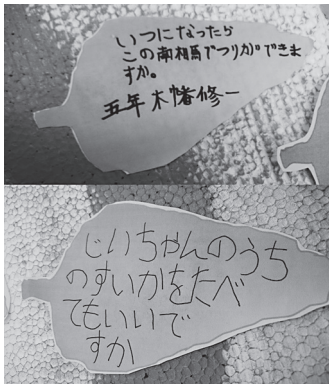 いつになったら
この南相馬でつりができま
すか。
五年 木幡修一
じいちゃんのうち
のすいかをたべ
てもいいで
すか